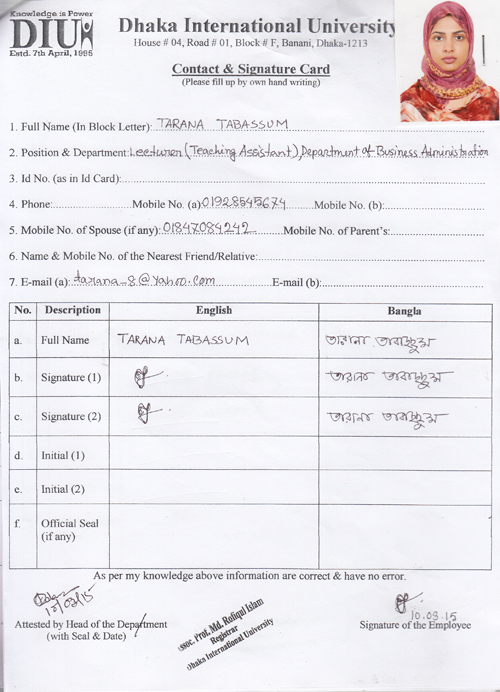 Knowledge is Power
DIU
Estd. 7th April, 1995
Dhaka International University
House # 04, Road # 01, Block # F, Banani, Dhaka-1213
Contact & Signature Card
(Please fill up by own hand writing)
1. Full Name (In Block Letter): TARANA TABASSUM
2. Position & Department: Lecturer (Teaching Assistant), Department of Business Administration
3. Id No. (as in Id Card):
4. Phone: Mobile No. (a) 01928545674 Mobile No. (b):
5. Mobile No. of Spouse (if any): 01847084242 Mobile No. of Parent's:
6. Name & Mobile No. of the Nearest Friend/Relative:
7. E-mail (a): tarana_8@yahoo.com E-mail (b):
No. Description English Bangla
a. Full Name TARANA TABASSUM তারানা তাবাচ্ছুম
b. Signature (1) তারানা তাবাচ্ছুম
c. Signature (2) তারানা তাবাচ্ছুম
d. Initial (1)
e. Initial (2)
f. Official Seal
(if any)
As per my knowledge above information are correct & have no error.
10.03.15
Attested by Head of the Department
(with Seal & Date)
Assoc. Prof. Md. Rafiqul Islam
Registrar
Dhaka International University
Signature of the Employee